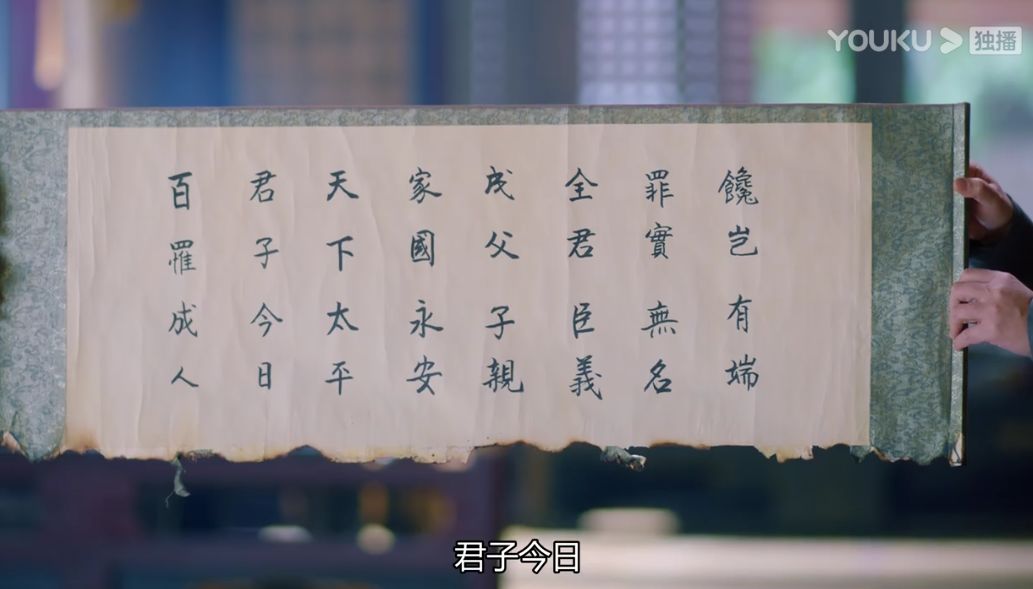 YOUKU 独播
饞岂有端
罪實無名
全君臣義
成父子親
家國永安
天下太平
君子今日
百罹成人
君子今日